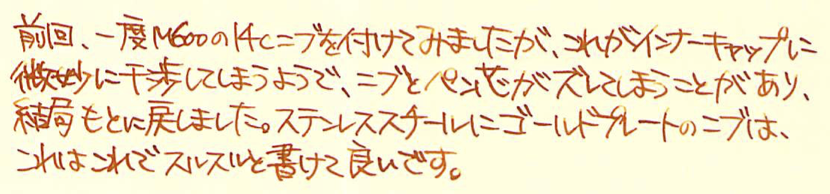 前回、一度M600の14Cニブを付けてみましたが、これがインナーキャップに
微妙に干渉してしまうようで、ニブとペン芯がズレてしまうことがあり、
結局もとに戻しました。ステンレススチールにゴールドプレートのニブは、
これはこれでスルスルと書けて良いです。